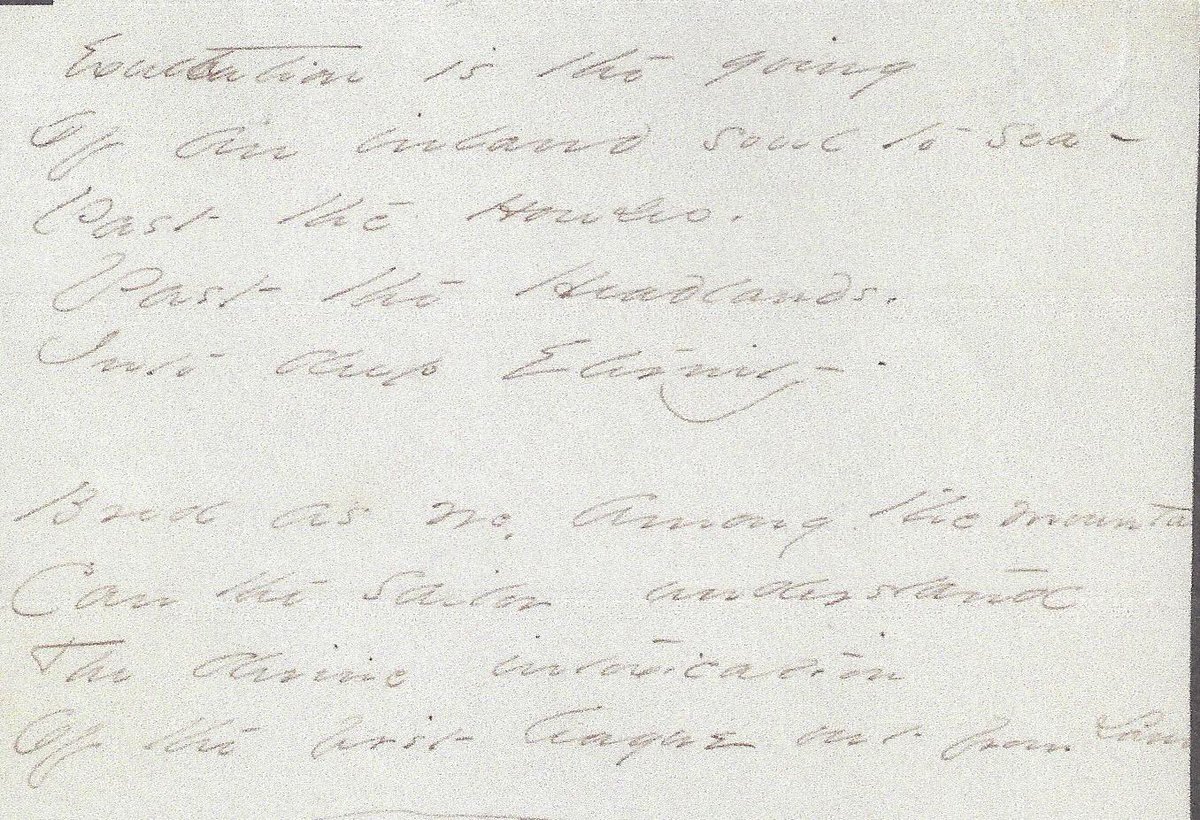 Exultation is the going
Of an inland soul to sea -
Past the Houses.
Past the Headlands.
Into deep Eternity -
Bred as we, among the mounta
Can the sailor understand
The divine intoxication
Of the first league out from Lan